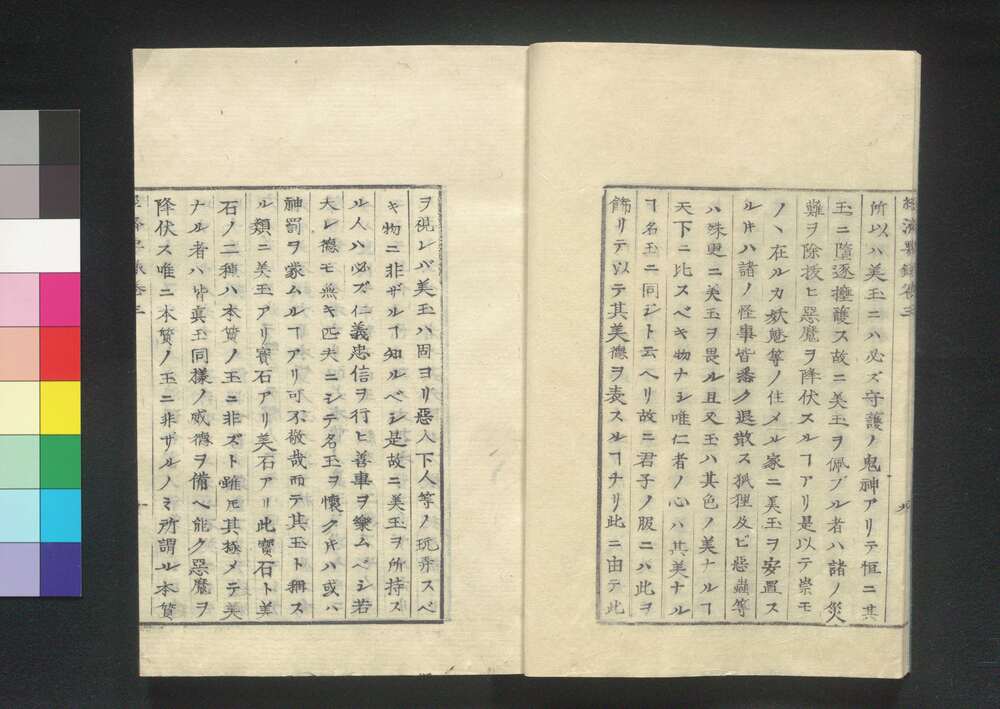 所以ハ美玉ニハ必ズ守護ノ鬼神アリテ恒ニ其
玉ニ墮逐擁護ス故ニ美玉ヲ佩ブル者ハ諸ノ災
難ヲ除拔ヒ惡魔ヲ降伏スルヿアリ是以テ崇モ
ノヽ在ルカ妖魅等ノ住メル家ニ美玉ヲ安置ス
ルキハ諸ノ怪事皆悉ク退散ス狐狸及ビ惡蟲等
ハ殊更ニ美玉ヲ畏ル且又玉ハ其色ノ美ナルヿ
天下ニ比スベキ物ナシ唯仁者ノ心ハ其美ナル
ヿ名玉ニ同シト云ヘリ故ニ君子ノ服ニハ此ヲ
飾リテ以テ其美德ヲ表スルヿナリ此ニ由テ此
ヲ視レバ美玉ハ固ヨリ惡人下人等ノ玩弄スベ
キ物ニ非ザルヿ知ルベシ是故ニ美玉ヲ所持ス
ル人ハ必ズ仁義忠信ヲ行ヒ善事ヲ樂ムベシ若
夫レ德モ無キ匹夫ニシテ名玉ヲ懷クキハ或ハ
神罰ヲ蒙ムルヿアリ可不敬哉而テ其玉ト稱ス
ル類ニ美玉アリ寶石アリ美石アリ此寶石ト美
石ノ二種ハ本質ノ玉ニ非ズト雖𪜈其極メテ美
ナル者ハ皆眞玉同樣ノ威德ヲ備ヘ能ク惡魔ヲ
降伏ス唯ニ本質ノ玉ニ非ザルノミ所謂ル本質